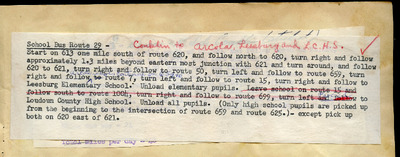 School Bus Route 29 - Conklin to Arcola, Leesburg and L.C.H.S.
Start on 613 one mile south of route 620, and follow north to 620, turn right and follow
approximately 1.3 miles beyond eastern most junction with 621 and turn around, and follow
620 to 621, turn right and follow to route 50, turn left and follow to route 659, turn
right and follow to route 7, turn left and follow to route 15, turn right and follow to
Leesburg Elementary School. Unload elementary pupils. Leave school on route 15 and
follow south to route 1004, turn right and follow to route 699, turn left and follow to
Loudoun County High School. Unload all pupils. (Only high school pupils are picked up
from the beginning to the intersection of route 659 and route 625.)- except pick up
both on 620 east of 621.
Total miles per day -